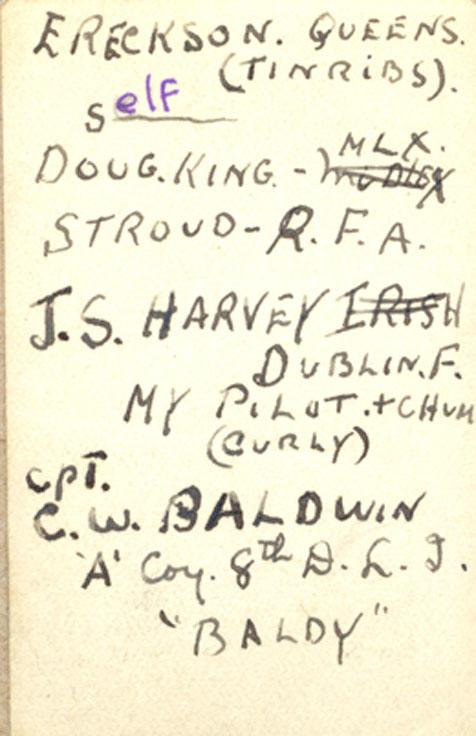 ERECKSON. QUEENS.
(TINRIBS).
self
DOUG. KING. - MLX.
STROUD - R. F. A.
J. S. HARVEY IRISH
DUBLIN. F.
MY PILOT. + CHUM
(CURLY)
CPT.
C. W. BALDWIN
'A' Coy. 8th D. L. I.
"BALDY"